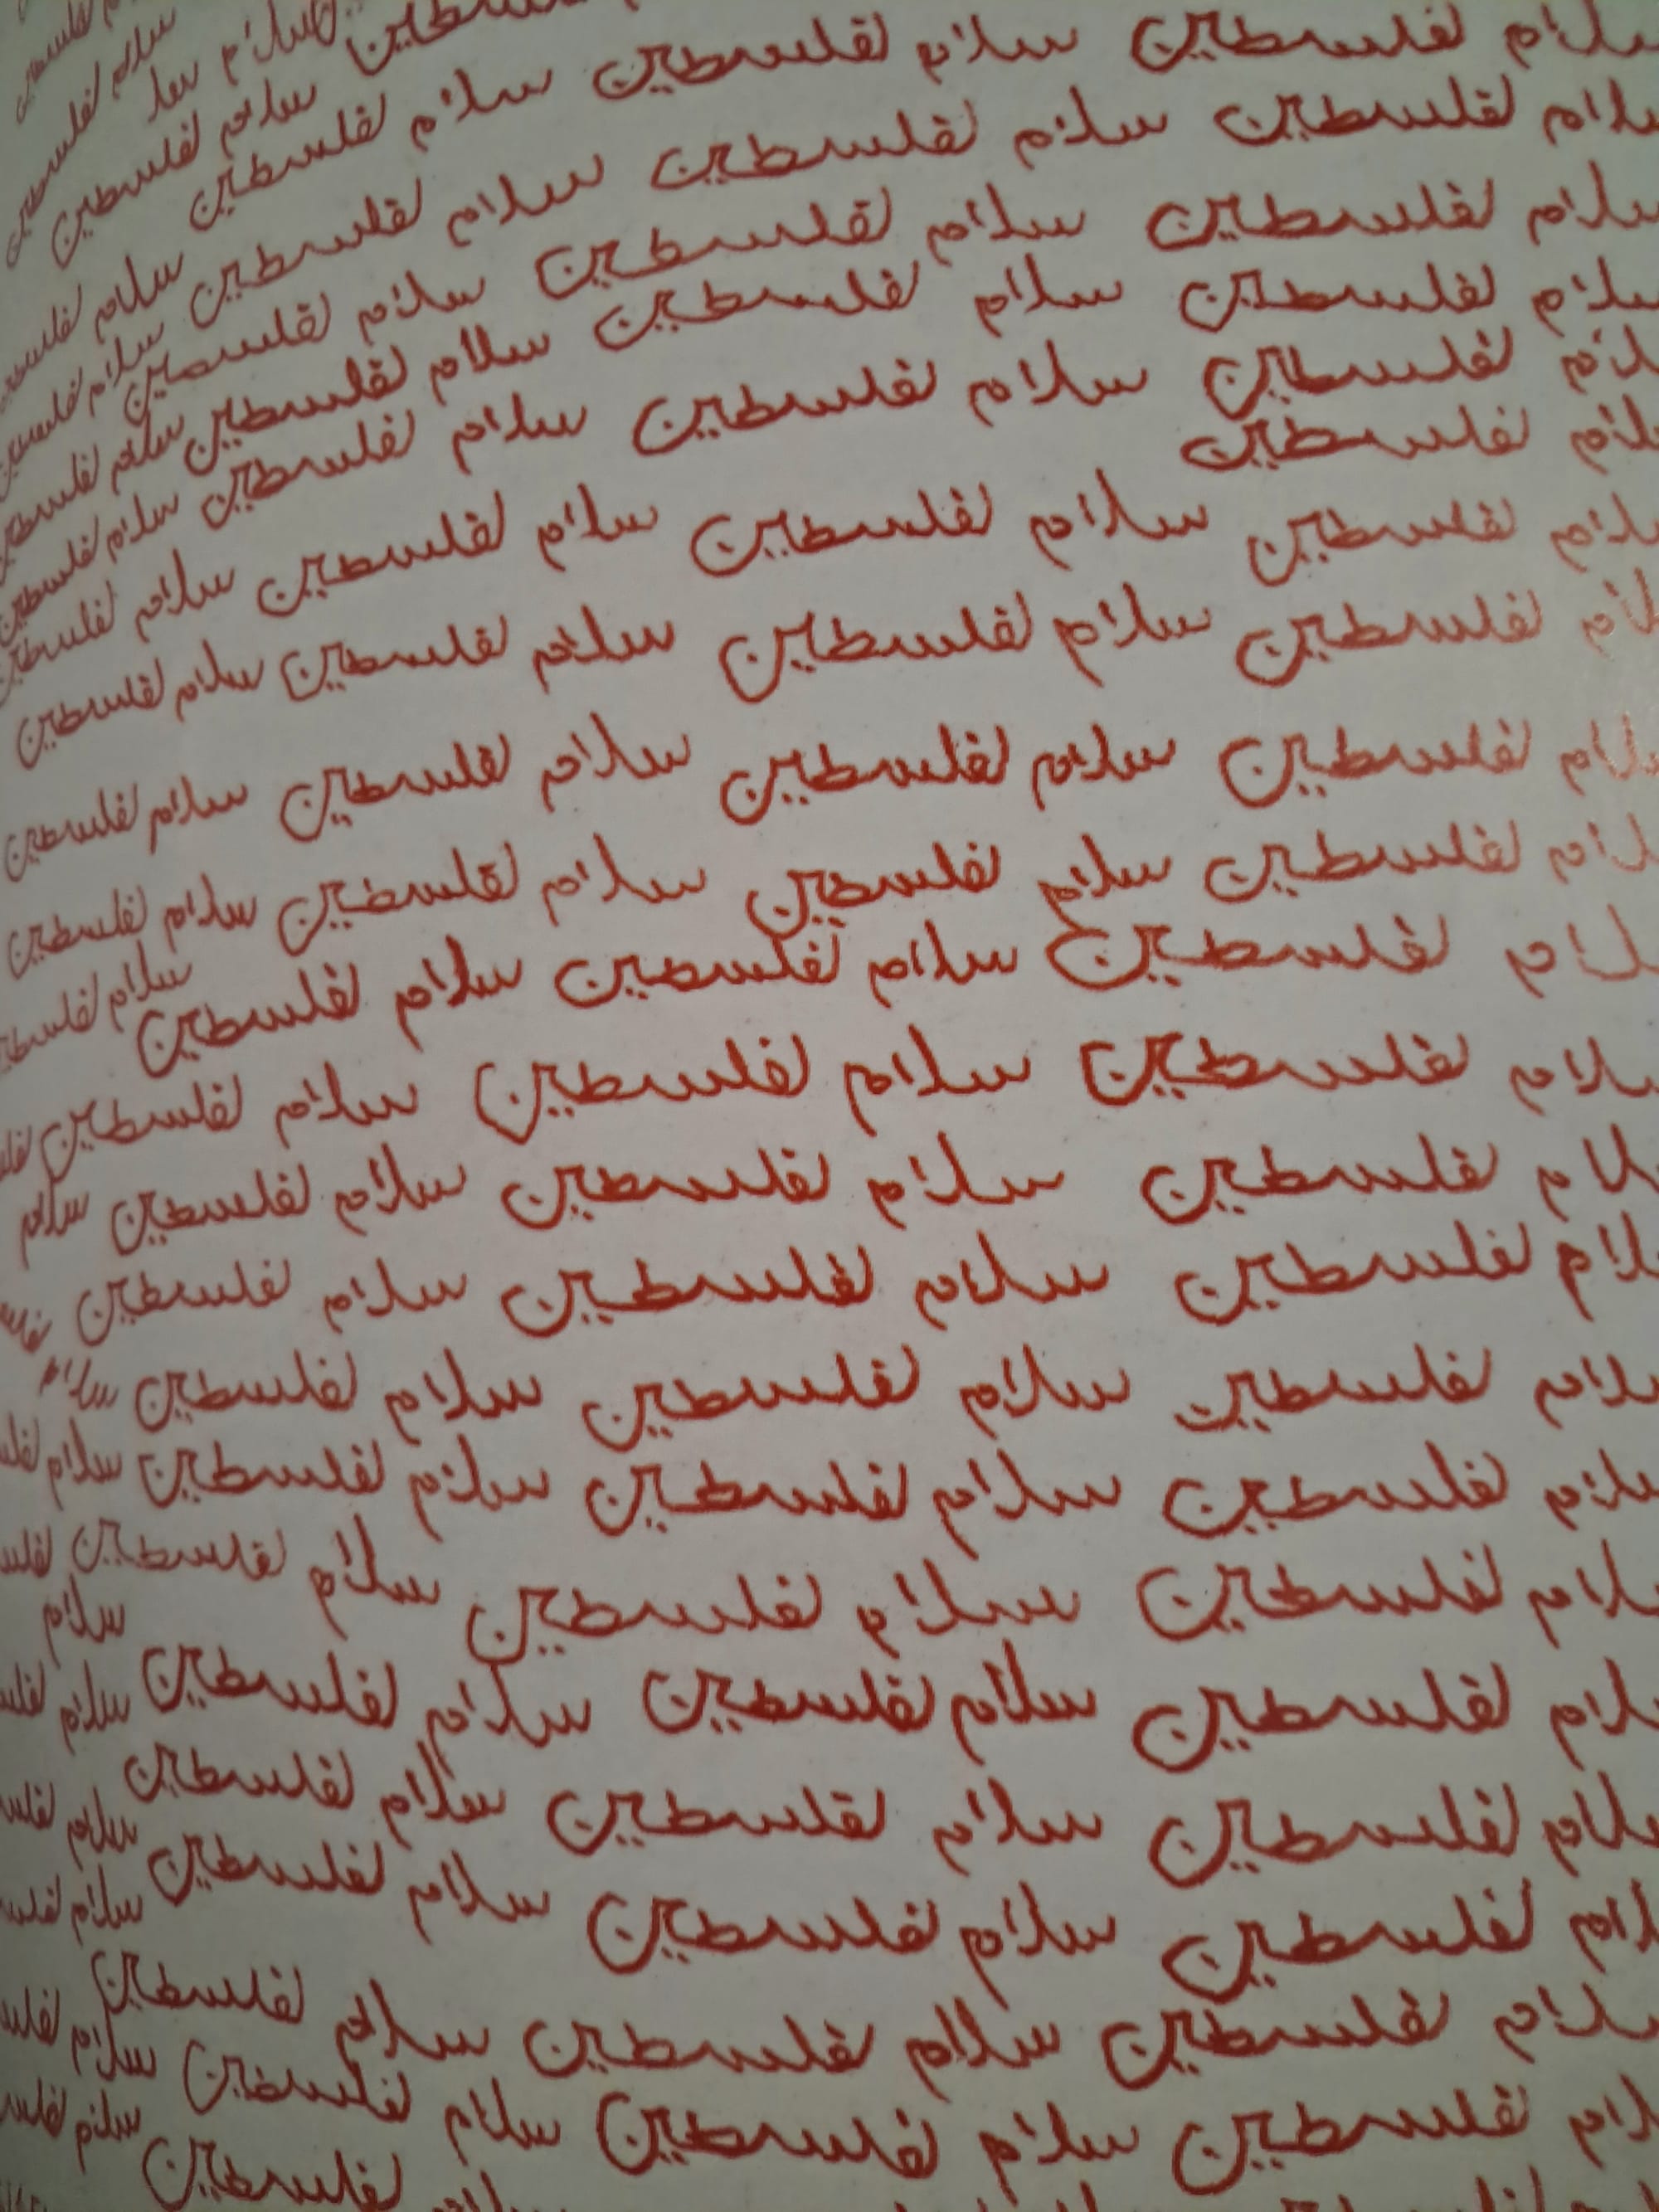 سلام لفلسطين سلام لفلسطين سلام لفلسطين
سلام لفلسطين سلام لفلسطين سلام لفلسطين
سلام لفلسطين سلام لفلسطين سلام لفلسطين
سلام لفلسطين سلام لفلسطين سلام لفلسطين
سلام لفلسطين سلام لفلسطين سلام لفلسطين
لفلسطين
سلام لفلسطين سلام لفلسطين سلام لفلسطين سلام لفلسطين
سلام لفلسطين سلام لفلسطين سلام لفلسطين سلام لفلسطين
سلام لفلسطين سلام لفلسطين سلام لفلسطين سلام لفلسطين
سلام لفلسطين سلام لفلسطين سلام لفلسطين سلام لفلسطين
لفلسطين سلام لفلسطين سلام لفلسطين سلام
سلام لفلسطين سلام لفلسطين سلام لفلسطين
لفلسطين سلام لفلسطين سلام لفلسطين سلام
لفلسطين سلام لفلسطين سلام لفلسطين
سلام لفلسطين سلام لفلسطين سلام لفلسطين سلام
سلام لفلسطين سلام لفلسطين سلام لفلسطين سلام
سلام لفلسطين سلام لفلسطين سلام لفلسطين
سلام
سلام لفلسطين سلام لفلسطين سلام لفلسطين سلام
سلام لفلسطين سلام لفلسطين سلام لفلسطين سلام
لفلسطين سلام لفلسطين سلام لفلسطين سلام
سلام لفلسطين سلام لفلسطين سلام لفلسطين سلام
لفلسطين سلام لفلسطين سلام لفلسطين سلام
لفلسطين